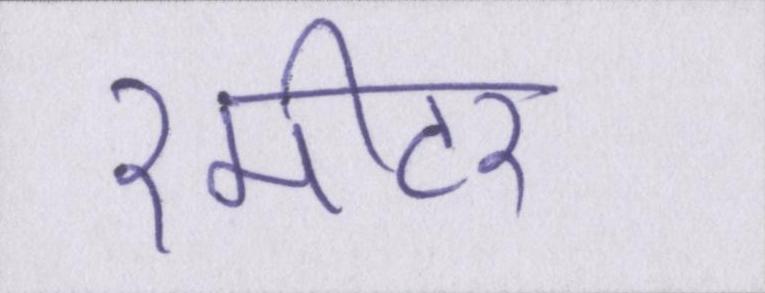 २मीटर